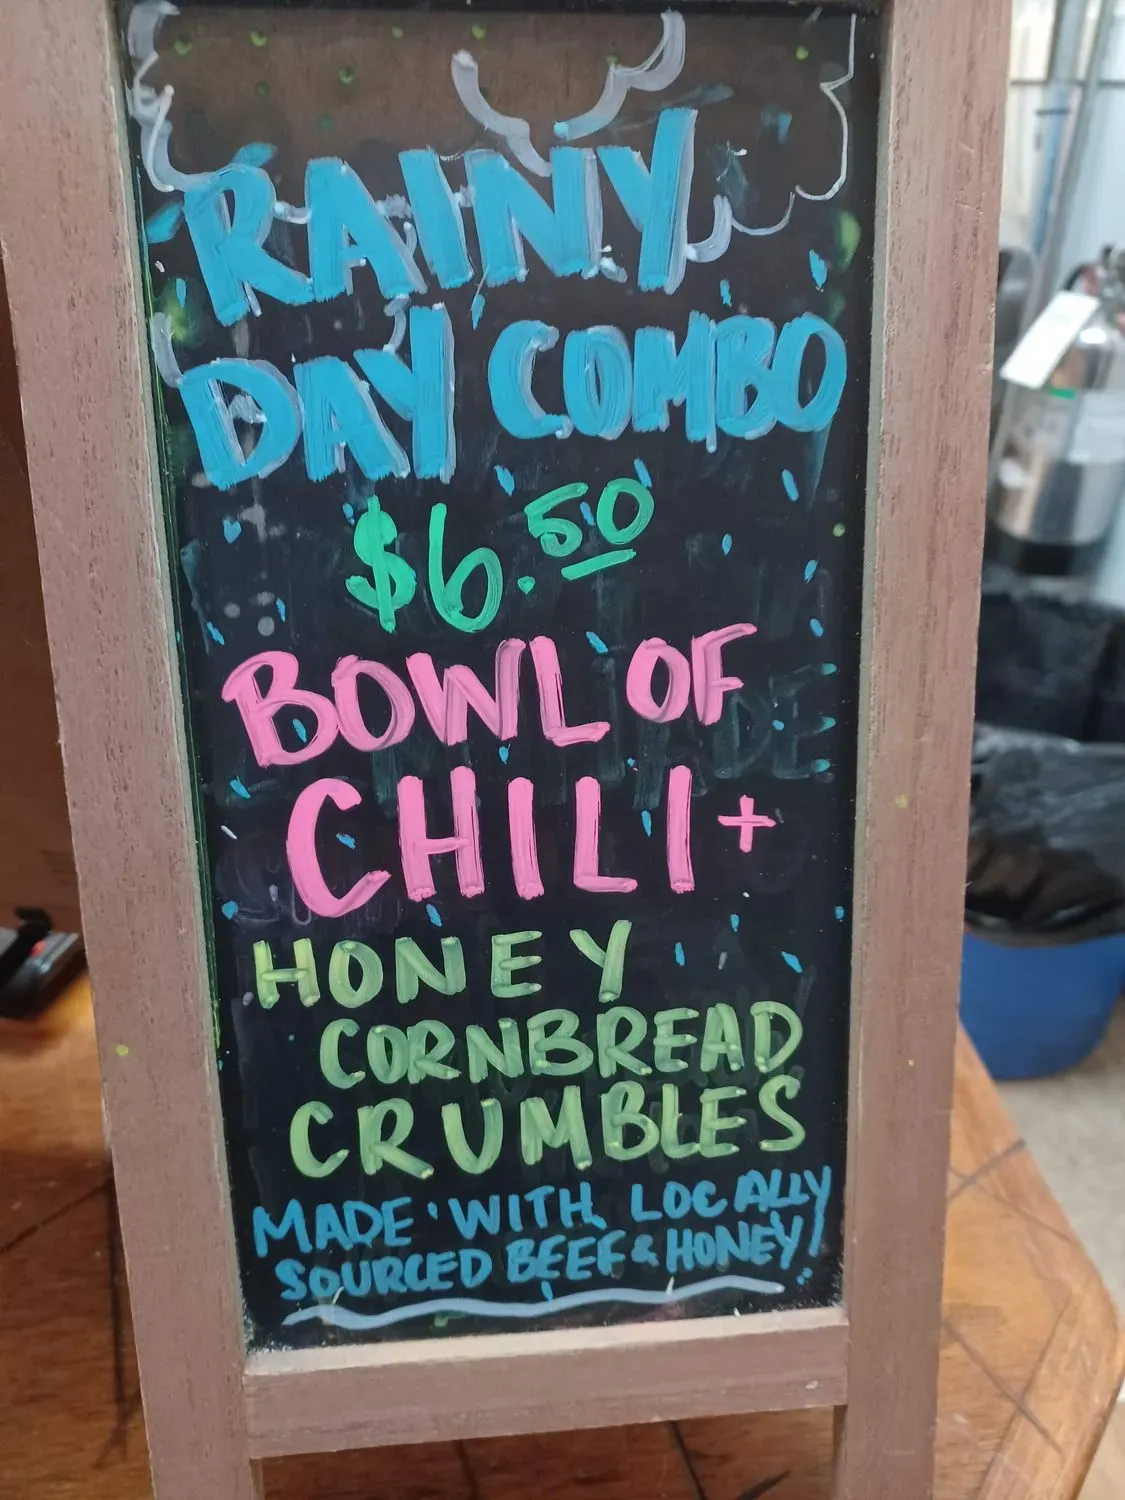 RAINY
DAY COMBO
$6.50
BOWL OF
CHILI+
HONEY
CORNBREAD
CRUMBLES
MADE WITH LOCALLY
SOURCED BEEF & HONEY!